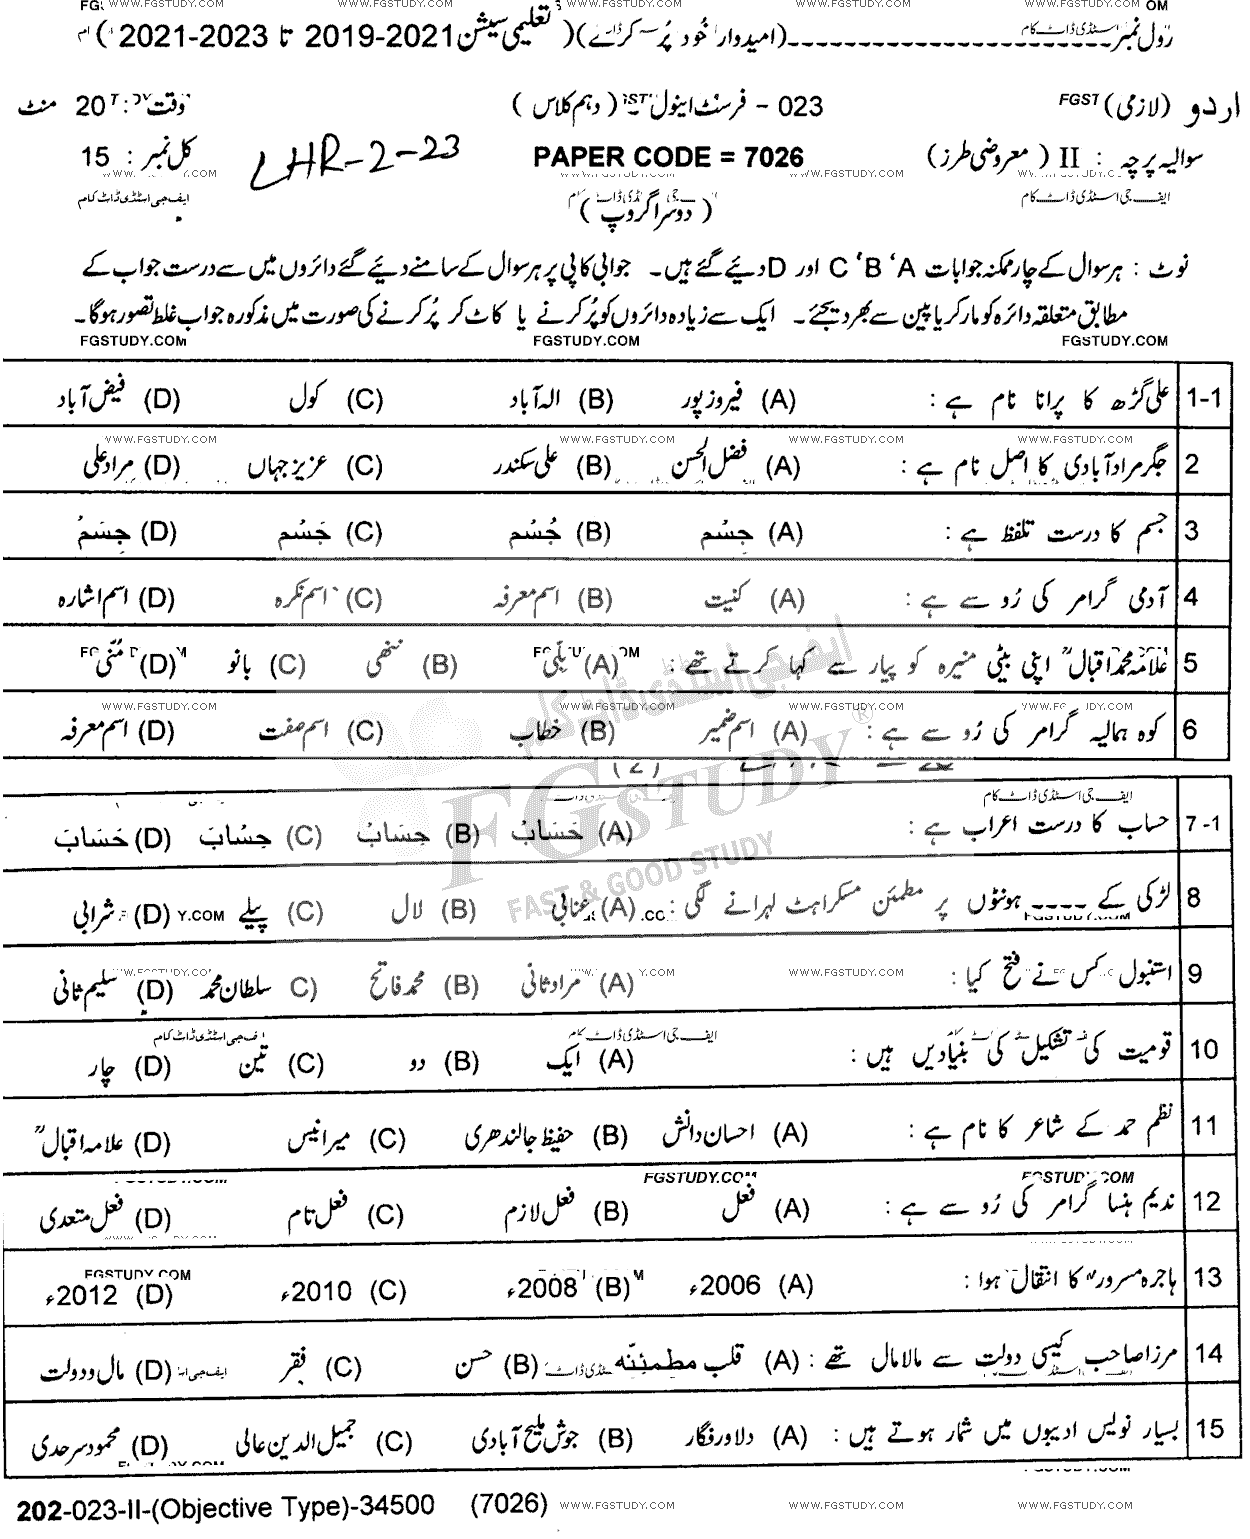 رول نمبر ـــــــــــــــــــ (امیدوار خود پُر کرے) (تعلیمی سیشن 2021-2019 تا 2023-2021)
اردو (لازمی) 023 - فرسٹ اینول - (دہم کلاس) وقت : 20 منٹ
سوالیہ پرچہ : II (معروضی طرز) PAPER CODE = 7026 LHR-2-23 کل نمبر : 15
WWW.FGSTUDY.COM
ایف جی اسٹڈی ڈاٹ کام (دوسرا گروپ) ایف جی اسٹڈی ڈاٹ کام
نوٹ : ہر سوال کے چار ممکنہ جوابات A‘ B‘ C اور D دیئے گئے ہیں۔ جوابی کاپی پر ہر سوال کے سامنے دیئے گئے دائروں میں سے درست جواب کے
مطابق متعلقہ دائرہ کو مارکر یا پین سے بھر دیجئے۔ ایک سے زیادہ دائروں کو پُر کرنے یا کاٹ کر پُر کرنے کی صورت میں مذکورہ جواب غلط تصور ہوگا۔
FGSTUDY.COM FGSTUDY.COM FGSTUDY.COM
1-1 علی گڑھ کا پرانا نام ہے : (A) فیروز پور (B) الہ آباد (C) کول (D) فیض آباد
WWW.FGSTUDY.COM WWW.FGSTUDY.COM WWW.FGSTUDY.COM WWW.FGSTUDY.COM
2 جگر مراد آبادی کا اصل نام ہے : (A) فضل الحسن (B) علی سکندر (C) عزیز جہاں (D) مراد علی
3 جسم کا درست تلفظ ہے : (A) جِسْم (B) جُسْم (C) جَسْم (D) جِسَمْ
4 آدمی گرامر کی رُو سے ہے : (A) کنیت (B) اسم معرفہ (C) اسم نکرہ (D) اسم اشارہ
5 علامہ محمد اقبالؒ اپنی بیٹی منیرہ کو پیار سے کہا کرتے تھے : (A) بلی (B) ننھی (C) بانو (D) منّی
WWW.FGSTUDY.COM WWW.FGSTUDY.COM WWW.FGSTUDY.COM
6 کوہ ہمالیہ گرامر کی رُو سے ہے : (A) اسم ضمیر (B) خطاب (C) اسم صفت (D) اسم معرفہ
(2)
ایف جی اسٹڈی ڈاٹ کام
7-1 حساب کا درست اعراب ہے : (A) حَسَابْ (B) حِسَابْ (C) حِسْابَ (D) حَسَابَ
FGSTUDY
FAST & GOOD STUDY
8 لڑکی کے ـــــــ ہونٹوں پر مطمئن مسکراہٹ لہرانے لگی : (A) عنابی (B) لال (C) پیلے (D) شرابی
9 استنبول کس نے فتح کیا : (A) مراد ثانی (B) محمد فاتح (C) سلطان محمد (D) سلیم ثانی
ایف جی اسٹڈی ڈاٹ کام
10 قومیت کی تشکیل کی بنیادیں ہیں : (A) ایک (B) دو (C) تین (D) چار
11 نظم حمد کے شاعر کا نام ہے : (A) احسان دانش (B) حفیظ جالندھری (C) میر انیس (D) علامہ اقبالؒ
FGSTUDY.COM FGSTUDY.COM FGSTUDY.COM
12 ندیم ہنسا گرامر کی رُو سے ہے : (A) فعل (B) فعل لازم (C) فعل تام (D) فعل متعدی
13 ہاجرہ مسرور کا انتقال ہوا : (A) 2006ء (B) 2008ء (C) 2010ء (D) 2012ء
14 مرزا صاحب کیسی دولت سے مالامال تھے : (A) قلب مطمئنّہ (B) حسن (C) فقر (D) مال و دولت
15 بسیار نویس ادیبوں میں شمار ہوتے ہیں : (A) دلاور فگار (B) جوش ملیح آبادی (C) جمیل الدین عالی (D) محمود سرحدی
202-023-II-(Objective Type)-34500 (7026) WWW.FGSTUDY.COM WWW.FGSTUDY.COM WWW.FGSTUDY.COM